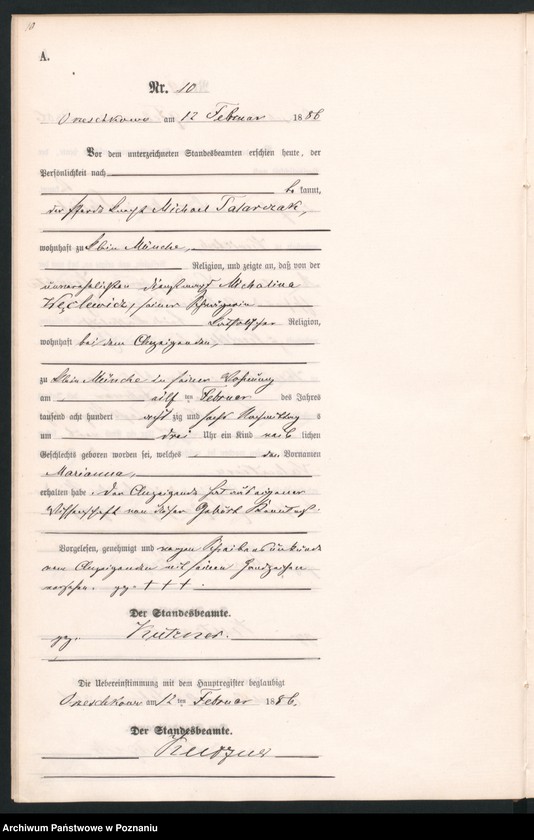 10
A.
Nr. 10
Orzeschkowo am 12 Februar 1886
Vor dem unterzeichneten Standesbeamten erschien heute, der
Persönlichkeit nach
be kannt,
der Pferdeknecht Michael Tatarczak,
wohnhaft zu Klein Münche,
Religion, und zeigte an, daß von der
unverehelichten Dienstmagd Michalina
Węclewicz, seiner Schwägerin
katholischer Religion,
wohnhaft bei dem Anzeigenden,
zu Klein Münche in seiner Wohnung
am eilf ten Februar des Jahres
tausend acht hundert acht zig und sechs Nachmittag s
um drei Uhr ein Kind weib lichen
Geschlechts geboren worden sei, welches den Vornamen
Marianna,
erhalten habe. Der Anzeigende hat aus eigener
Wissenschaft von dieser Geburt Kenntniß.
Vorgelesen, genehmigt und wegen Schreibensunkunde
vom Anzeigenden mit seinem Handzeichen
versehen. gez. + + +
Der Standesbeamte.
gez. Kutzner.
Die Uebereinstimmung mit dem Hauptregister beglaubigt
Orzeschkowo am 12 ten Februar 1886.
Der Standesbeamte.
Kutzner
Archiwum Państwowe w Poznaniu